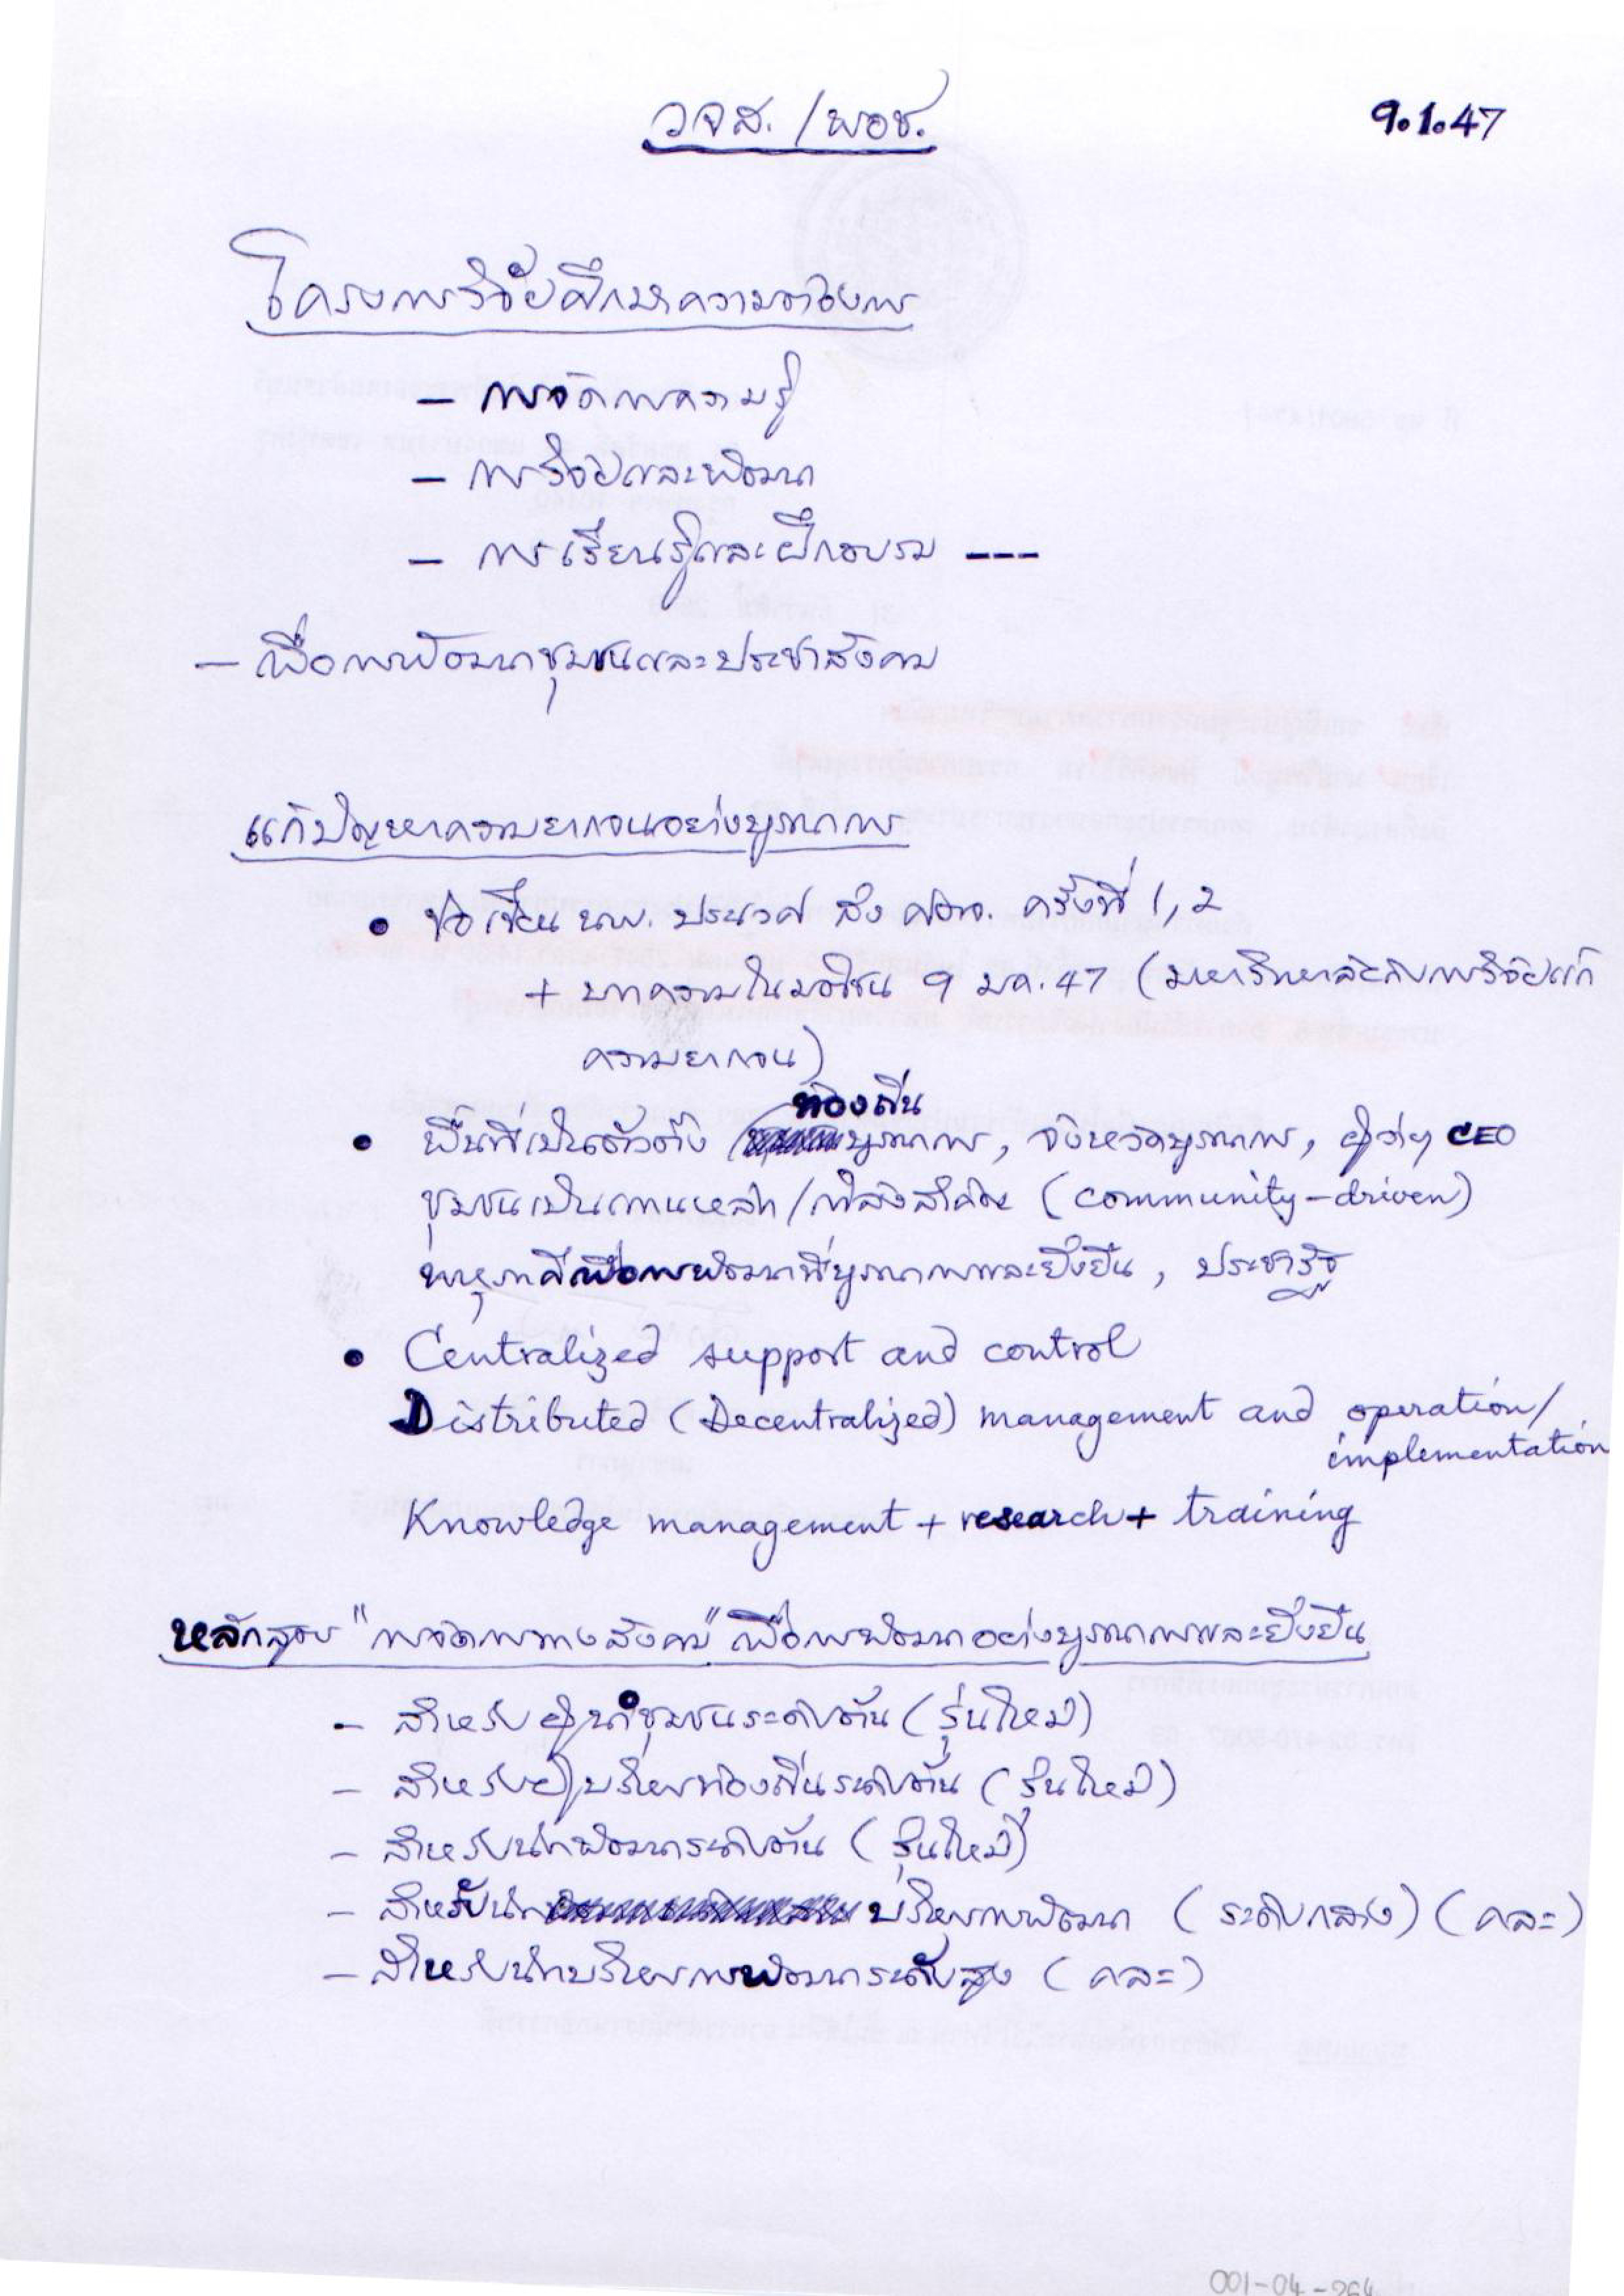 วจส. /พอช.
9.1.47
โครงการวิจัยศึกษาความต้องการ
– การจัดการความรู้
– การวิจัยและพัฒนา
– การเรียนรู้และฝึกอบรม ---
– เพื่อการพัฒนาชุมชนและประชาสังคม
แก้ปัญหาความยากจนอย่างบูรณาการ
• ข้อเขียน นพ. ประเวศ ถึง ศตจ. ครั้งที่ 1, 2
+ บทความในมติชน 9 มค. 47 (มหาวิทยาลัยกับการวิจัยแก้
ความยากจน)
ท้องถิ่น
• พื้นที่เป็นตัวตั้ง บูรณาการ, จังหวัดบูรณาการ, ผู้ว่าฯ CEO
ชุมชนเป็นแกนหลัก/กำลังสำคัญ (community-driven)
พหุภาคีเพื่อการพัฒนาที่บูรณาการและยั่งยืน, ประชารัฐ
• Centralized support and control
Distributed (Decentralized) management and operation/
implementation
Knowledge management + research + training
หลักสูตร "การจัดการทางสังคม" เพื่อการพัฒนาอย่างบูรณาการและยั่งยืน
– สำหรับผู้นำชุมชนระดับต้น (รุ่นใหม่)
– สำหรับผู้บริหารท้องถิ่นระดับต้น (รุ่นใหม่)
– สำหรับนักพัฒนาระดับต้น (รุ่นใหม่)
– สำหรับนัก บริหารการพัฒนา (ระดับกลาง) (คละ)
– สำหรับนักบริหารการพัฒนาระดับสูง (คละ)
001-04-264